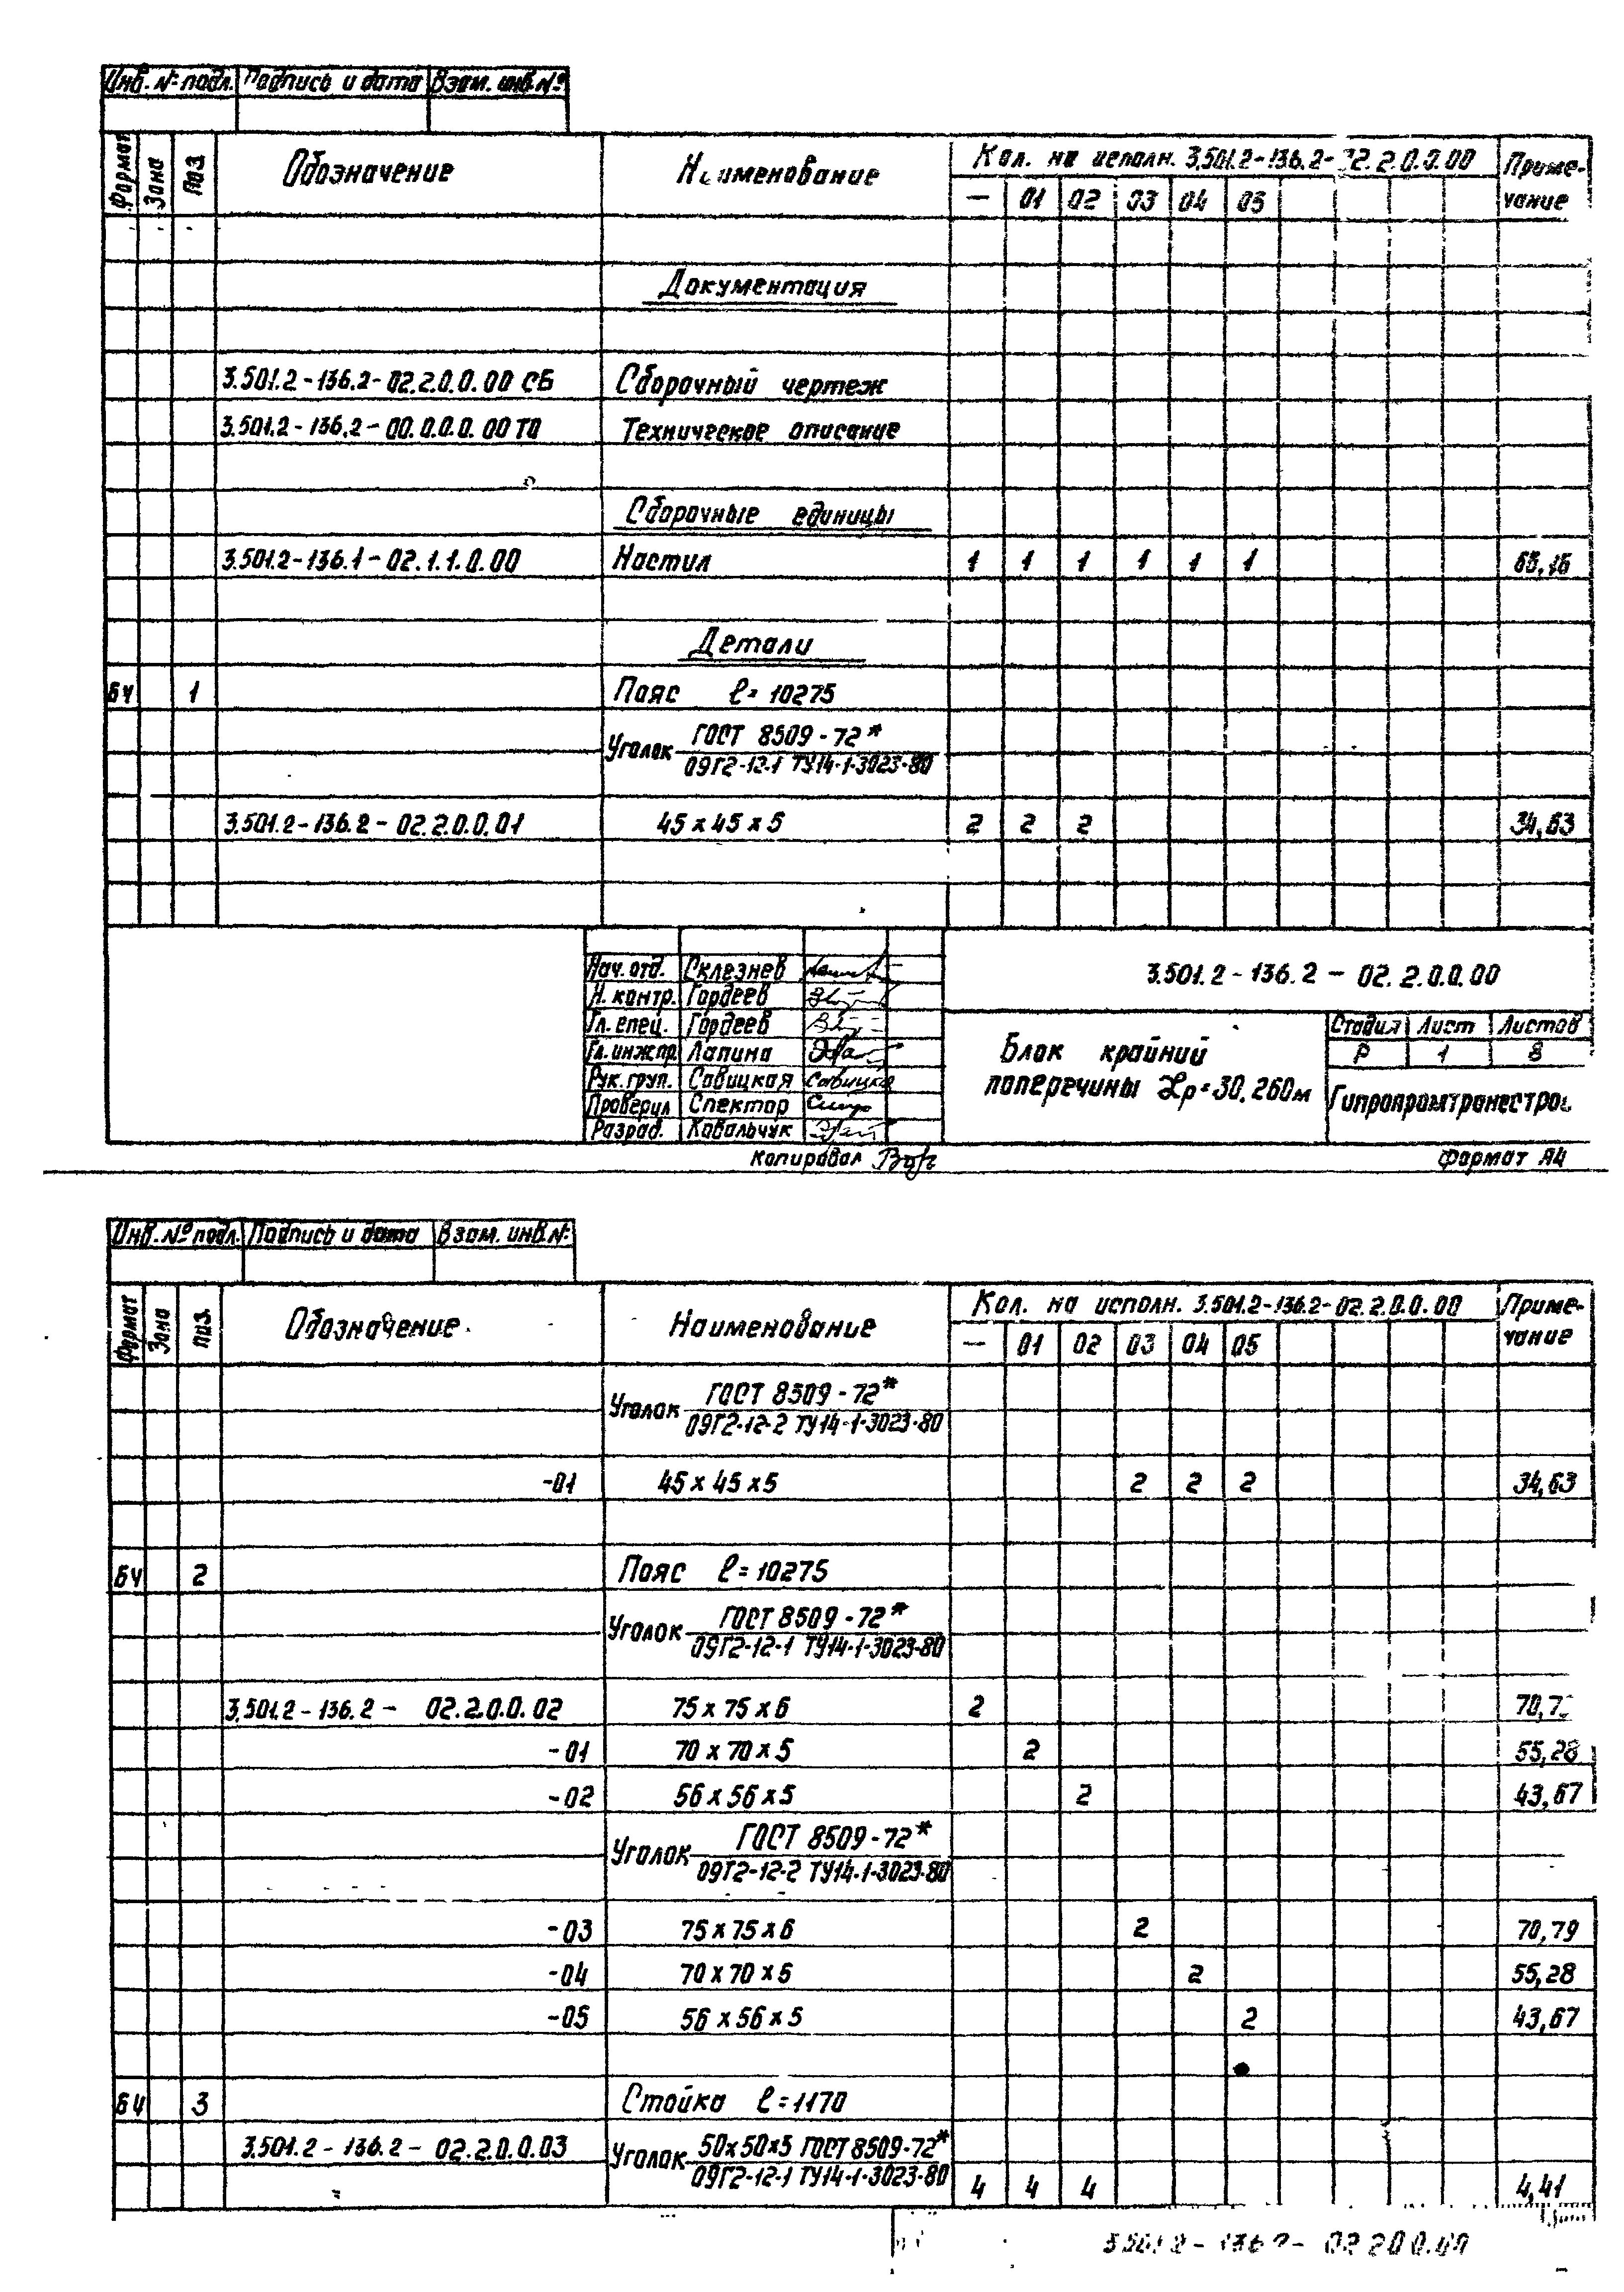 Инв. № подл. Подпись и дата Взам. инв. №
Формат Зона Поз. Обозначение Наименование Кол. на исполн. 3.501.2-136.2-02.2.0.0.00 Приме-
— 01 02 03 04 05 чание
Документация
3.501.2-136.2-02.2.0.0.00 СБ Сборочный чертеж
3.501.2-136.2-00.0.0.0.00 ТО Техническое описание
Сборочные единицы
3.501.2-136.1-02.1.1.0.00 Настил 1 1 1 1 1 1
Детали
БЧ 1 Пояс ℓ= 10275
Уголок ГОСТ 8509-72*
09Г2-12-1 ТУ14-1-3023-80
3.501.2-136.2-02.2.0.0.01 45 x 45 x 5 2 2 2 34,63
Нач. отд. Склезнев
Н. контр. Гордеев
Гл. спец. Гордеев
Гл. инж. пр. Лапина
Рук. груп. Савицкая Савицкая
Проверил Спектор
Разраб. Ковальчук
3.501.2-136.2-02.2.0.0.00
Блок крайний
поперечины ℒр=30,260м
Стадия Лист Листов
Р 1 8
Гипропромтрансстрой
Копировал Формат А4
Инв. № подл. Подпись и дата Взам. инв. №
Формат Зона Поз. Обозначение Наименование Кол. на исполн. 3.501.2-136.2-02.2.0.0.00 Приме-
— 01 02 03 04 05 чание
Уголок ГОСТ 8509-72*
09Г2-12-2 ТУ14-1-3023-80
-01 45 x 45 x 5 2 2 2 34,63
БЧ 2 Пояс ℓ= 10275
Уголок ГОСТ 8509-72*
09Г2-12-1 ТУ14-1-3023-80
3.501.2-136.2- 02.2.0.0.02 75 x 75 x 6 2
-01 70 x 70 x 5 2 55,28
-02 56 x 56 x 5 2 43,67
Уголок ГОСТ 8509-72*
09Г2-12-2 ТУ14-1-3023-80
-03 75 x 75 x 6 2 70,79
-04 70 x 70 x 5 2 55,28
-05 56 x 56 x 5 2 43,67
БЧ 3 Стойка ℓ=1170
3.501.2-136.2-02.2.0.0.03 Уголок 50x50x5 ГОСТ 8509-72*
09Г2-12-1 ТУ14-1-3023-80 4 4 4 4,41
3.501.2-136.2-02.2.0.0.00